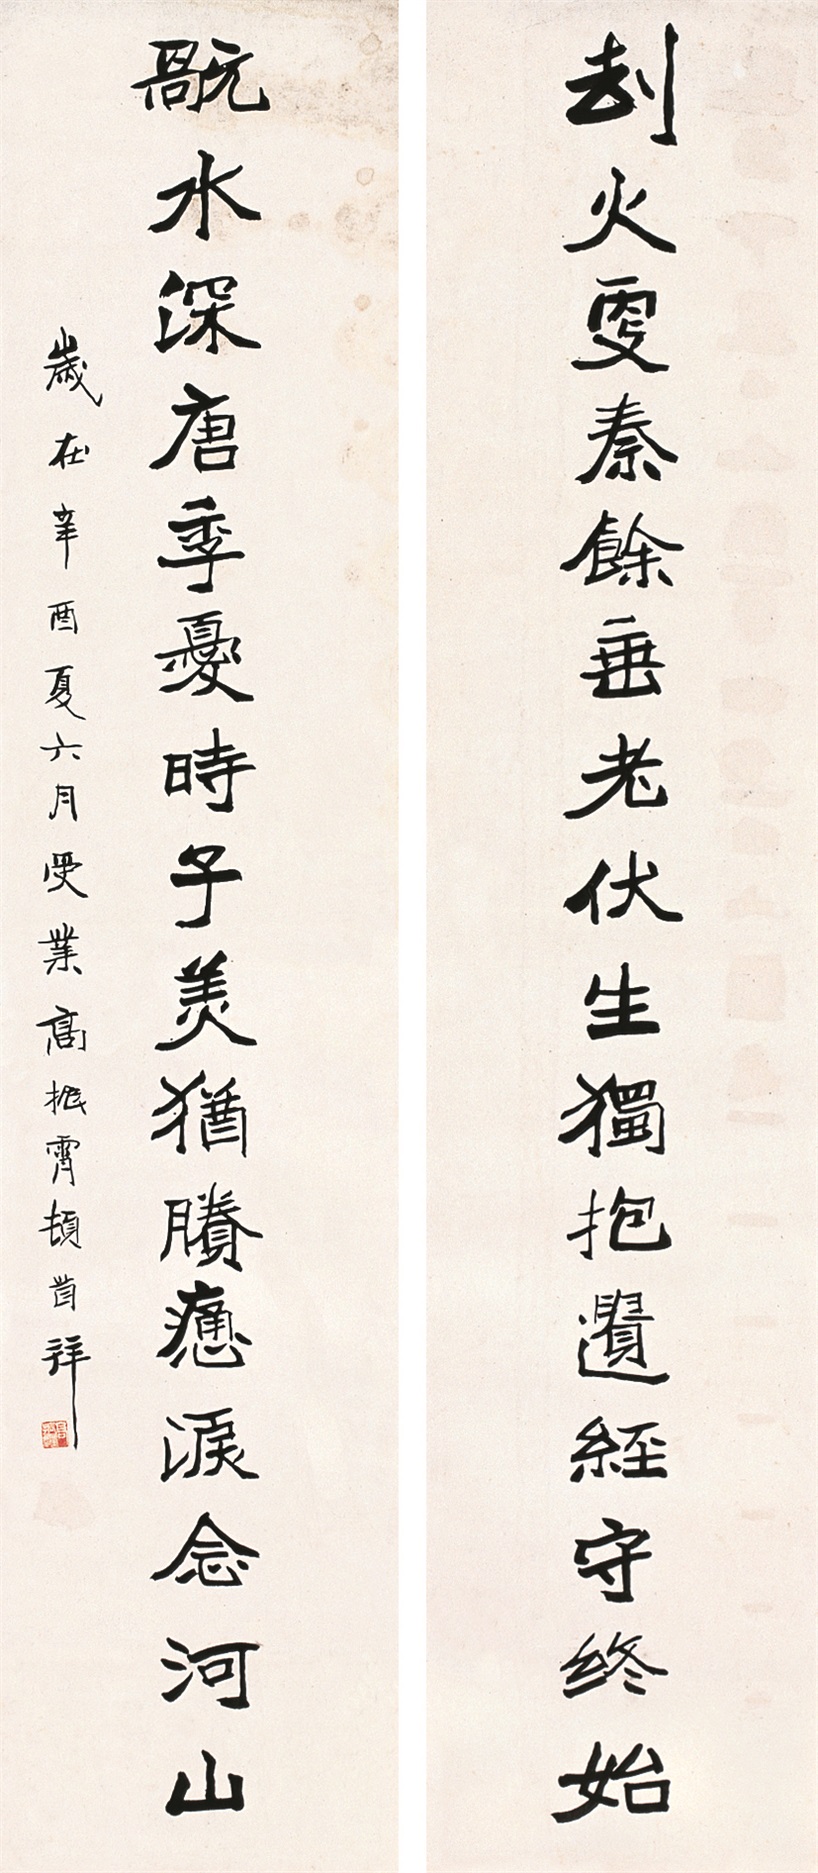 劫火更秦餘垂老伏生獨抱遺經守終始
旤水深唐季憂時子美猶賸痛淚念河山
歲在辛酉夏六月受業高振霄頓首拜